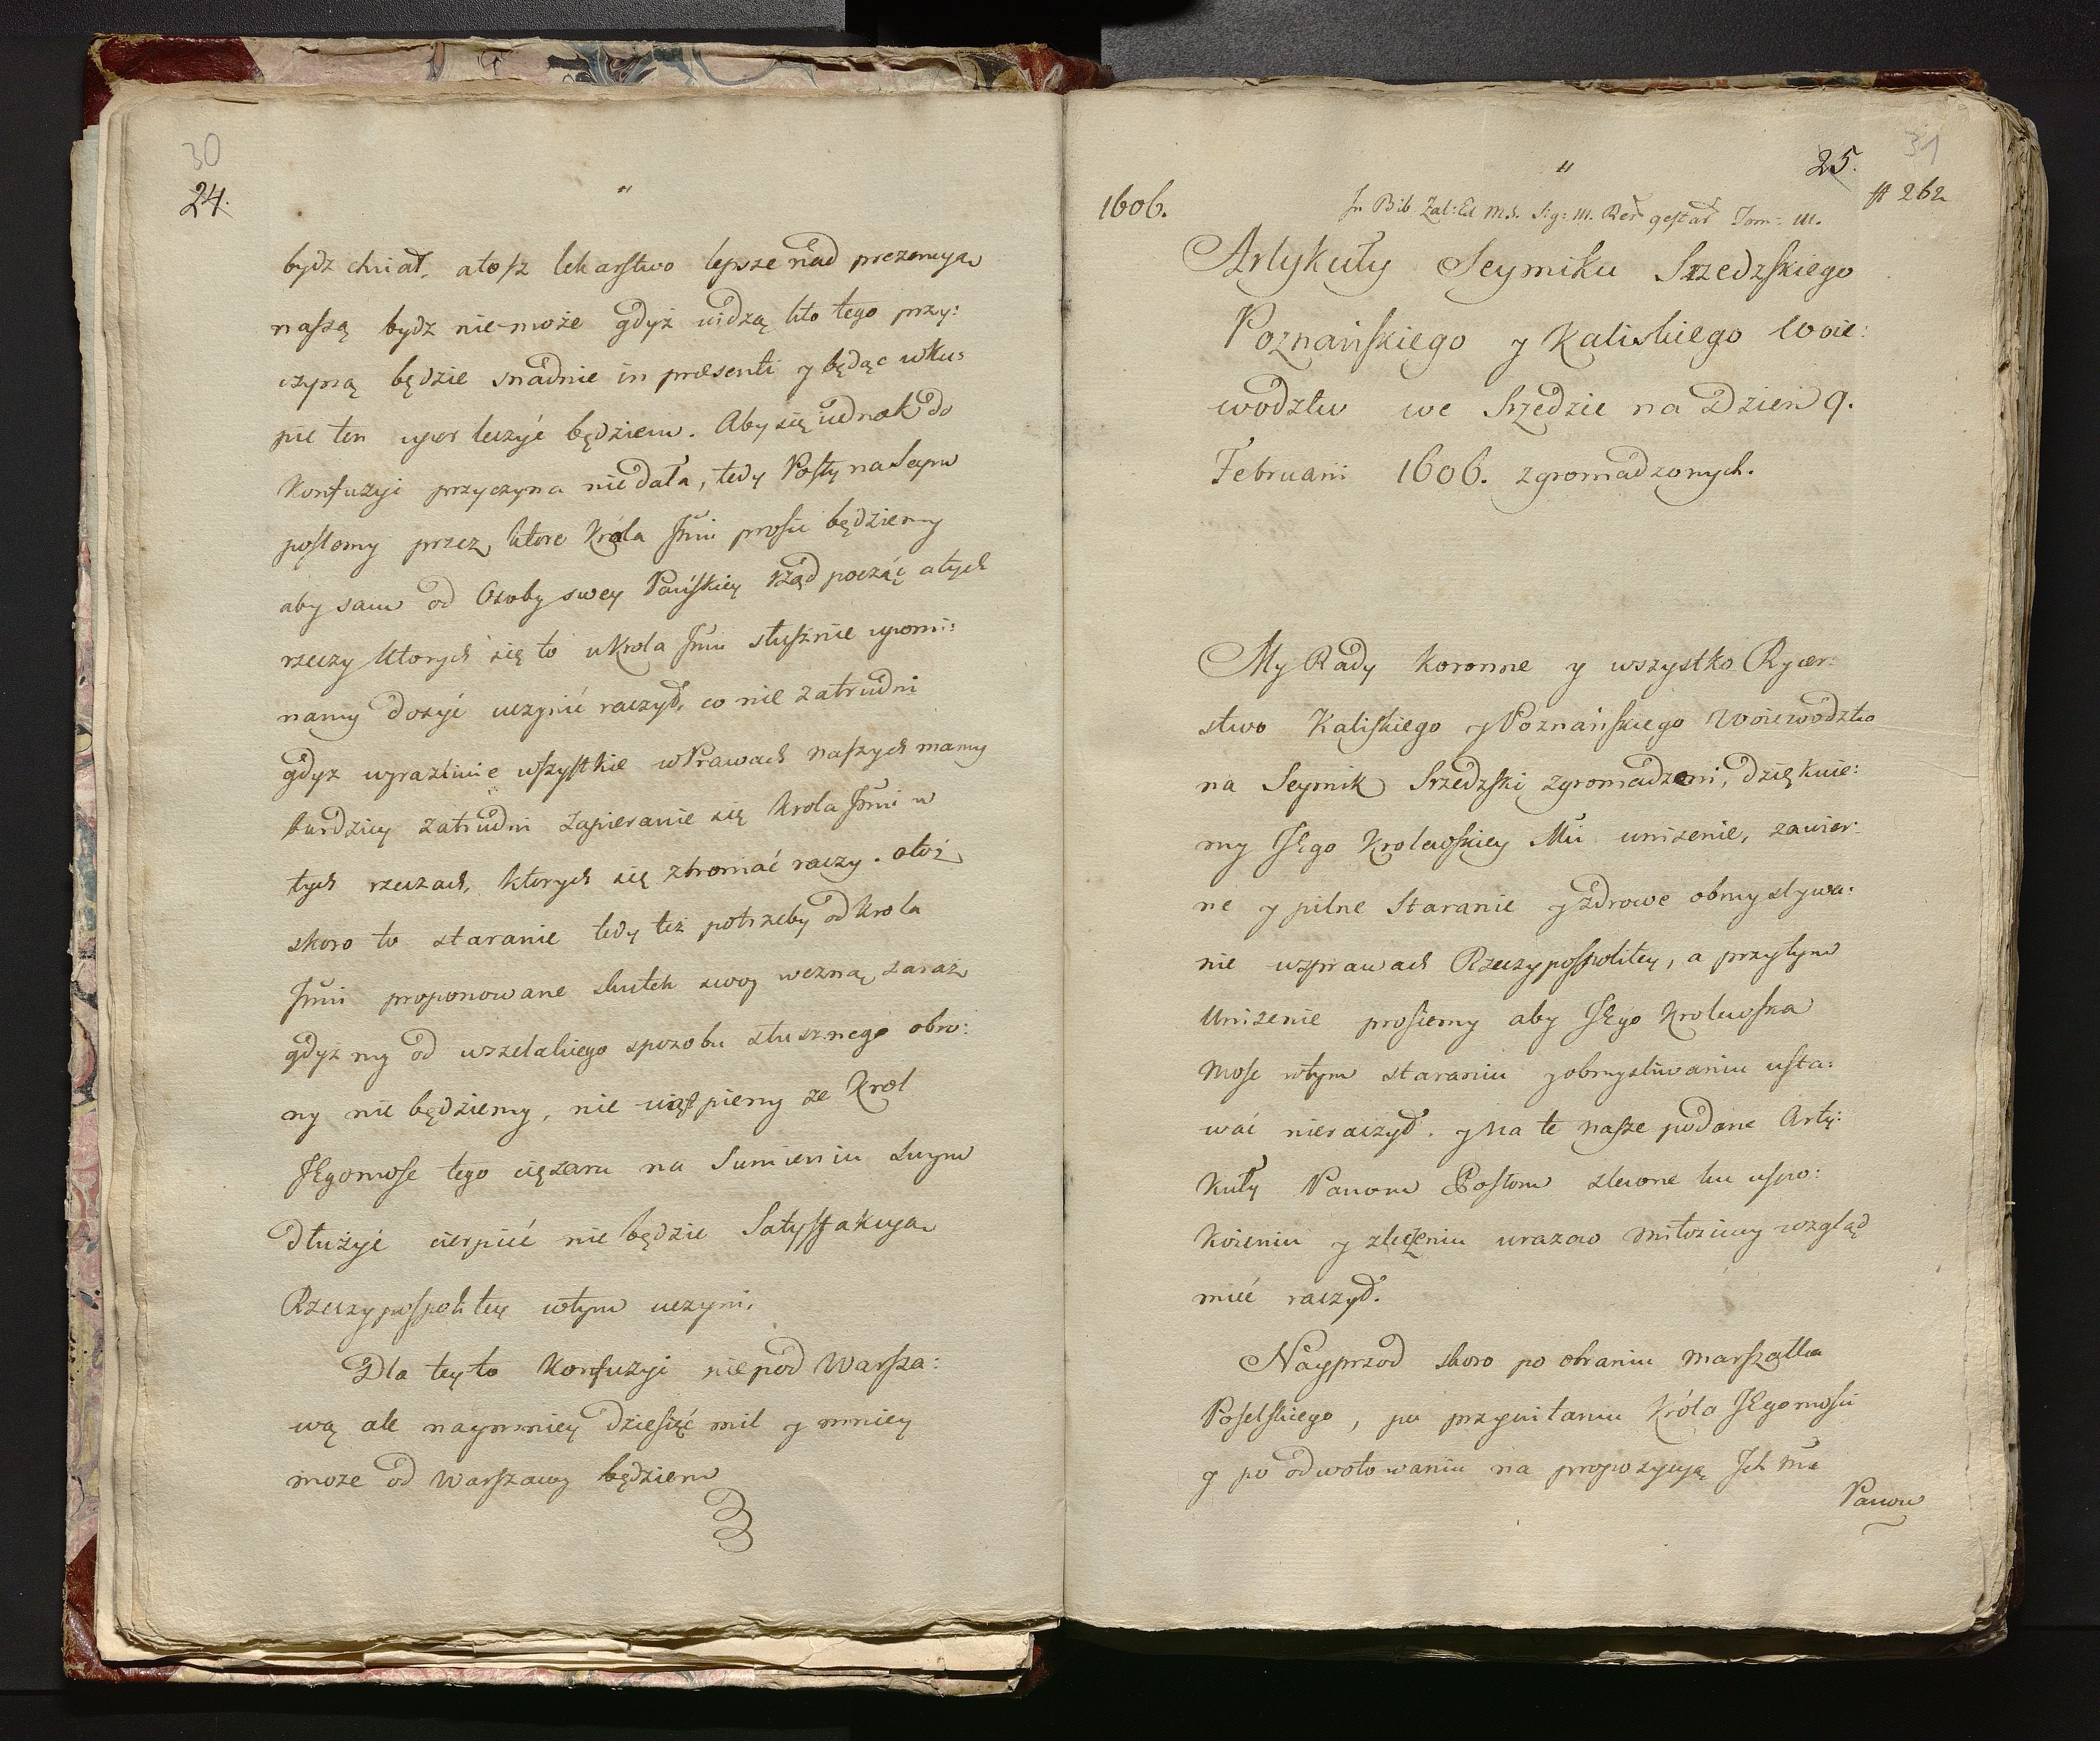 30
24.
"
bydz chciał, atosz lekarstwo lepsze nad prezencyą
naszą bydz nie może gdyż widzą kto tego przy:
czyną będzie snadnie in præsenti y będąc wku:
pie ten wzor leczyć będziem. Aby się iednak do
Konfuzyi przyczyna nie dała, tedy Posły na Seym
poslemy przez ktore Króla Jmci prosić będziemy
aby sam od Osoby swey Pańskiey rząd począć a tych
rzeczy ktorych się to u Krola Jmci słusznie upomi:
namy dosyć uczynić raczył, co nie zatrudni
gdyz wyrazliwie wszystkie w Prawach naszych mamy
bardziey zatrudni zapieranie się Krola Jmci w
tych rzeczach, ktorych się zbroniać raczy. atoż
skoro to staranie tedy też potrzeby od Krola
Jmci proponowane skutek swoy wezmą zaraz
gdyż my od wszelakiego sposobu słusznego obro:
ny nie będziemy, nie wątpiemy ze Krol
JEgomość tego ciężaru na Sumieniu swym
dłużyć cierpieć nie będzie Satysfakcyą
Rzeczypospolitey wtym uczyni.
Dla tey to Konfuzyi nie pod Warsza:
wą ale naymniey dziesięć mil y mniey
moze od Warszawy będziem
"
25.
31
1606.
In Bib. Zal: Ed M.S. Sig: III. Rer gestar Tom: III.
# 262
Artykuły Seymiku Srzedzskiego
Poznańskiego y Kaliskiego Woie:
wodztw we Srzedzie na Dzień 9.
Februarii 1606. zgromadzonych.
My Rady Koronne y wszystko Rycer:
stwo Kaliskiego y Poznańskiego Woiewodztw
na Seymik Srzedzski zgromadzeni, dziękuie:
my JEgo Krolewskiey Mci unizenie, za wier:
ne y pilne Staranie y zdrowe obmyslywa:
nie wsprawach Rzeczypospolitey, a przytym
Unizenie prosiemy aby JEgo Krolewska
Mość wtym staraniu y obmysliwaniu usta:
wać nieraczył. y Na te nasze podane Arty:
kuły Panom Posłom zlecone ku uspo:
koieniu y zleczeniu urazow miłościwy wzgląd
mieć raczył.
Nayprzod skoro po obraniu Marszałka
Poselskiego, po przywitaniu Króla JEgomości
y po odwotowaniu na propozycyą Ich Mc
Panow